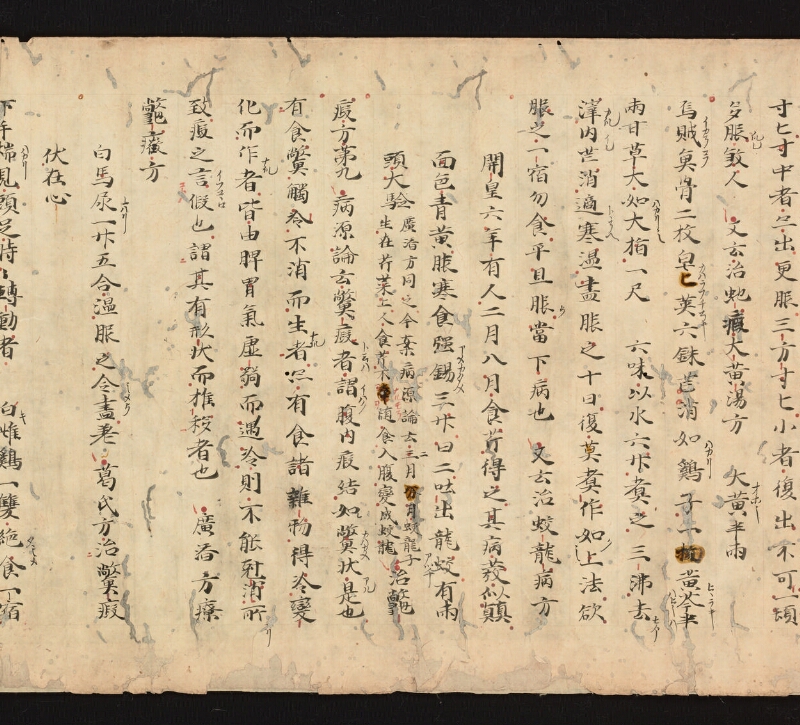 寸匕寸中者亦出更服三方寸匕小者復出不可一頓
多服敦人 又云治虵瘕大黄湯方 大黄半兩
烏賊魚骨二枚皂莢六銖芒消如鷄子一枚黄芩半
兩甘草大如大指一尺 六味以水六升煮之三沸去
滓内芒消適寒温盡服之十日復莫煮作如上法欲
服之一宿勿食平旦服當下病也 又云治蛟龍病方
開皇六年有人二月八月食芹得之其病發似癲
面色青黄服寒食强餳三升日二吐出龍蛟有兩
頭大驗 廣済方同之今案病源論云三月 月蛟龍子
生在芹菜上人食芹不 食入腹變成蛟龍 治鼈
瘕方第九 病源論云鱉瘕者謂腹内瘕結如鱉状是也
有食鱉觸冷不消而生者亦有食諸雜物得冷變
化而作者皆由脾胃氣虚弱而遇冷則不能尅消所
致瘕之言假也謂其有形状而推移者也 廣済方療
鼈癥方
白馬尿一升五合温服之令盡老 葛氏方治鱉瘕
伏在心
下手揣見頭足時々轉動者 白雌鷄一雙絶食一宿